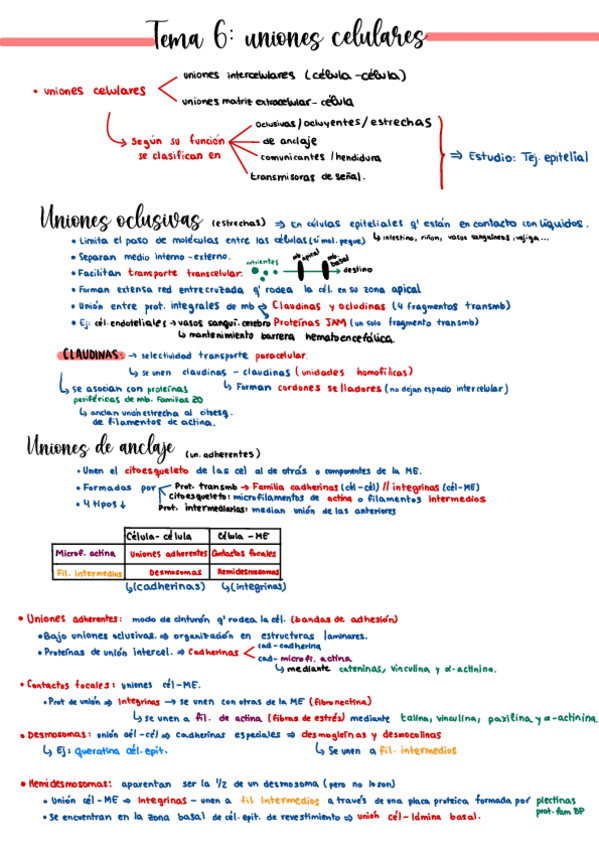 Tema 6: uniones celulares
• uniones celulares
uniones intercelulares (célula-célula)
uniones matriz extracelular-célula
Según su función se clasifican en
oclusivas/ocluyentes/estrechas
de anclaje
comunicantes/hendidura
transmisoras de señal.
⇒ Estudio: Tej. epitelial
Uniones oclusivas (estrechas) ⇒ En células epiteliales q' están en contacto con líquidos.
↳ intestino, riñon, vasos sanguíneos, vejiga...
• Limita el paso de moléculas entre las células (sí mol. peque)
• Separan medio interno-externo.
• Facilitan transporte transcelular.
nutrientes
mb apical
mb basal
→ destino
• Forman extensa red entrecruzada q' rodea la cél. en su zona apical
• Unión entre prot. integrales de mb → Claudinas y ocludinas (4 fragmentos transmb)
Proteínas JAM (un solo fragmento transmb)
• Ej: cél. endoteliales → vasos sanguí. cerebro
↳ mantenimiento barrera hematoencefálica.
CLAUDINAS: → selectividad transporte paracelular.
↳ se unen claudinas - claudinas (unidades homofílicas)
↳ Forman cordones selladores (no dejan espacio intercelular)
↳ se asocian con proteínas
periféricas de mb. Familias ZO
↳ anclan unión estrecha al citoesq.
de filamentos de actina.
Uniones de anclaje (un. adherentes)
• Unen el citoesqueleto de las cel al de otras o componentes de la ME.
• Formadas por
Prot. transmb → Familia cadherinas (cél-cél) // integrinas (cél-ME)
citoesqueleto: microfilamentos de actina o filamentos intermedios
Prot. intermediarias: median unión de las anteriores
• 4 tipos ↓
Célula-célula Célula-ME
Microf. actina Uniones adherentes Contactos focales
Fil. intermedios Desmosomas Hemidesmosomas
↳ (cadherinas) ↳ (integrinas)
• Uniones adherentes: modo de cinturón q' rodea la cél. (bandas de adhesión)
• Bajo uniones oclusivas. ⇒ organización en estructuras laminares.
• Proteínas de unión intercel. ⇒ Cadherinas
cad-cadherina
cad-microfi. actina
↳ mediante cateninas, vinculina y α-actinina.
• Contactos focales: uniones cél-ME.
• Prot de unión ⇒ Integrinas → se unen con otras de la ME (fibronectina)
↳ se unen a fil. de actina (fibras de estrés) mediante talina, vinculina, paxilina y α-actinina.
• Desmosomas: unión cél-cél ⇒ cadherinas especiales ⇒ desmogleínas y desmocolinas
↳ Ej: queratina cél. epit.
↳ Se unen a fil. intermedios
• Hemidesmosomas: aparentan ser la 1/2 de un desmosoma (pero no lo son)
• Unión cél-ME ⇒ Integrinas - unen a fil intermedios a través de una placa proteica formada por plectinas
prot. fam BP
• Se encuentran en la zona basal de cél. epit. de revestimiento ⇒ unión cél-lámina basal.